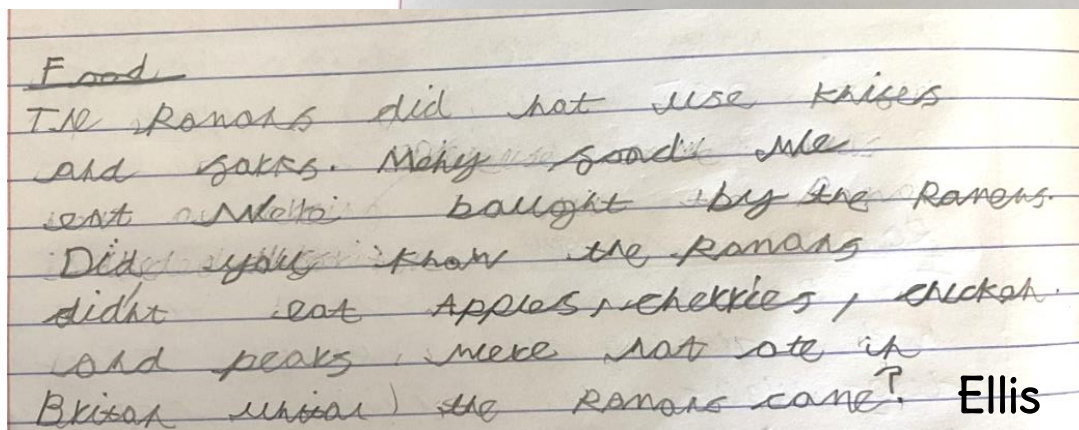 Food
The Romans did not use knifes
and forks. Many food we
eat bought by the Romans.
Did you know the Romans
didnt eat Apples, cherries, chicken.
and pears, were not ate in
Britan the Romans came?
Ellis